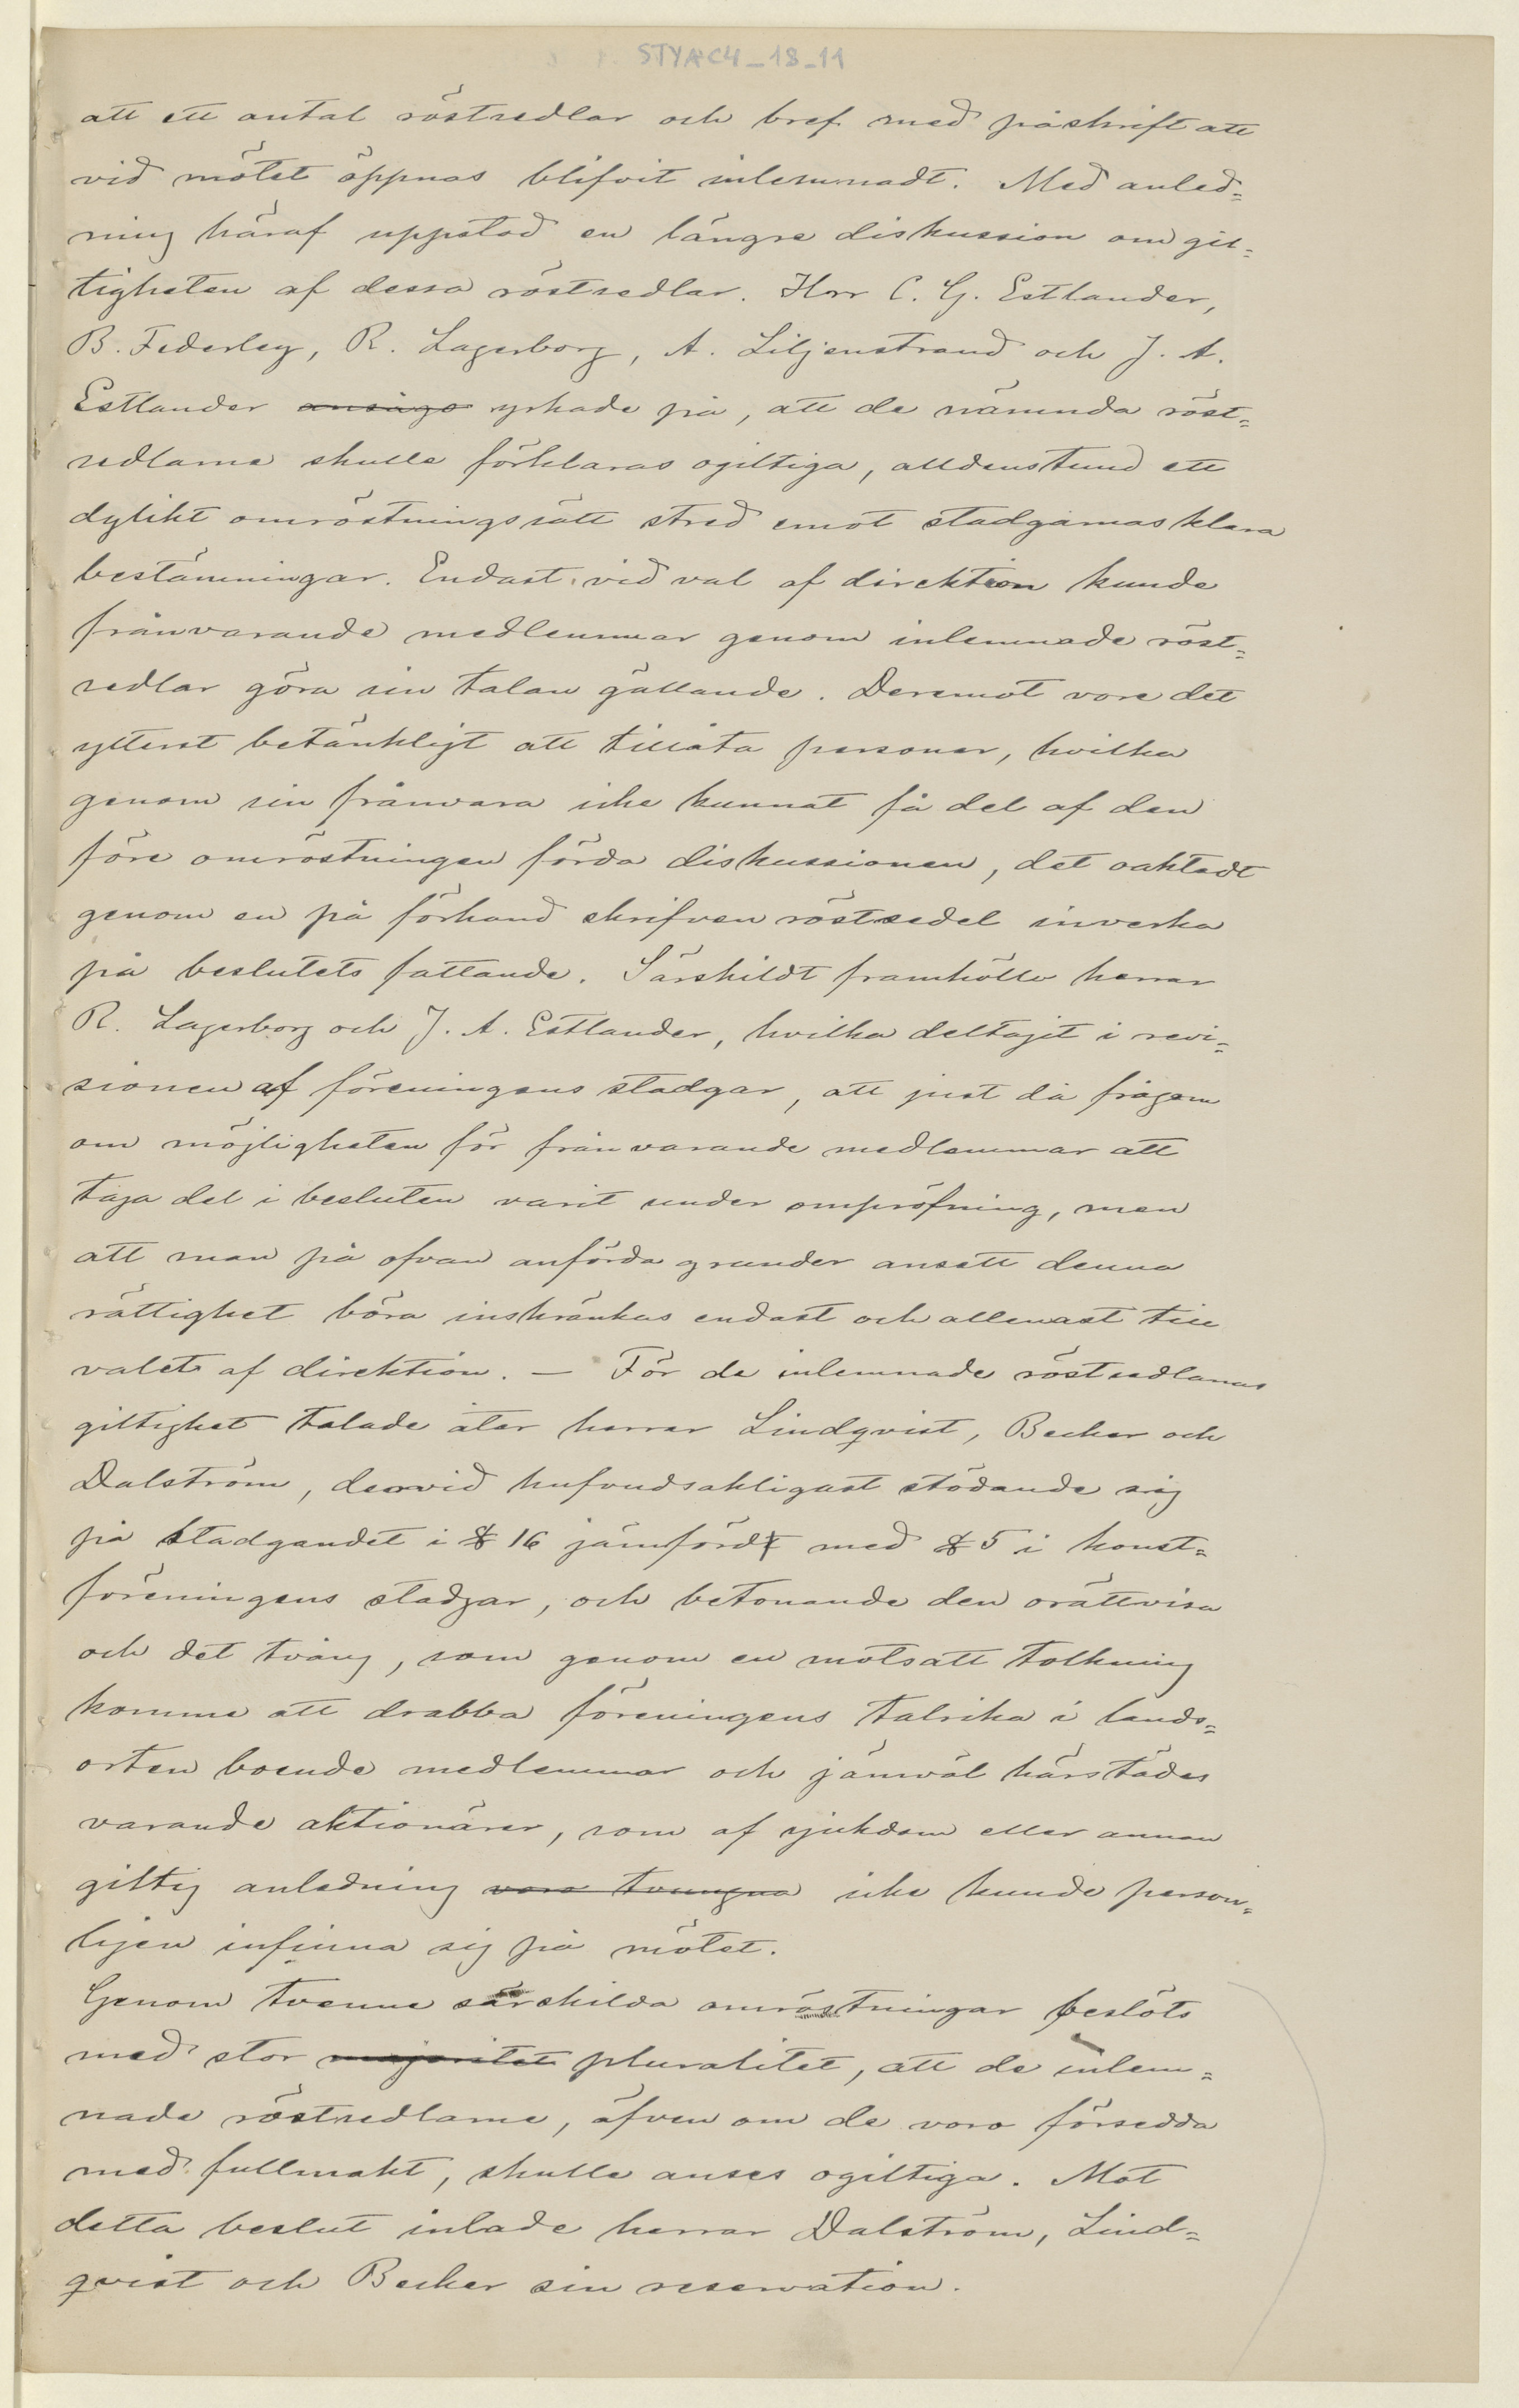 STYRC4_18_11
att ett antal röstsedlar och bref med påskrift att
vid mötet öppnas blifvit inlemnadt. Med anled=
ning häraf uppstod en längre diskussion om gil=
tigheten af dessa röstsedlar. Hrr C. G. Estlander,
B. Federley, R. Lagerborg, A. Liljenstrand och J. A.
Estlander ansågo yrkade på, att de nämnda röst=
sedlarne skulle förklaras ogiltiga, alldenstund ett
dylikt omröstningssätt stred emot stadgarnas klara
bestämningar. Endast vid val af direktion kunde
frånvarande medlemmar genom inlemnade röst=
sedlar göra sin talan gällande. Deremot vore det
ytterst betänkligt att tillåta personer, hvilka
genom sin frånvaro icke kunnat få del af den
före omröstningen förda diskussionen, det oaktadt
genom en på förhand skrifven röstsedel inverka
på beslutets fattande. Särskildt framhöllo herrar
R. Lagerborg och J. A. Estlander, hvilka deltagit i revi=
sionen af föreningens stadgar, att just då frågan
om möjligheten för frånvarande medlemmar att
taga del i besluten varit under ompröfning, men
att man på ofvan anförda grunder ansett denna
rättighet böra inskränkas endast och allenast till
valet af direktion. — För de inlemnade röstsedlarnas
giltighet talade åter herrar Lindqvist, Becker och
Dalström, dervid hufvudsakligast stödande sig
på stadgandet i § 16 jämförd med § 5 i konst=
föreningens stadgar, och betonande den orättvisa
och det tvång, som genom en motsatt tolkning
komme att drabba föreningens talrika i lands=
orten boende medlemmar och jämväl härstädes
varande aktionärer, som af sjukdom eller annan
giltig anledning voro tvungna icke kunde person=
ligen infinna sig på mötet.
Genom tvenne särskilda omröstningar beslöts
med stor majoritet pluralitet, att de inlem=
nade röstsedlarne, äfven om de voro försedda
med fullmakt, skulle anses ogiltiga. Mot
detta beslut inlade herrar Dalström, Lind=
qvist och Becker sin reservation.